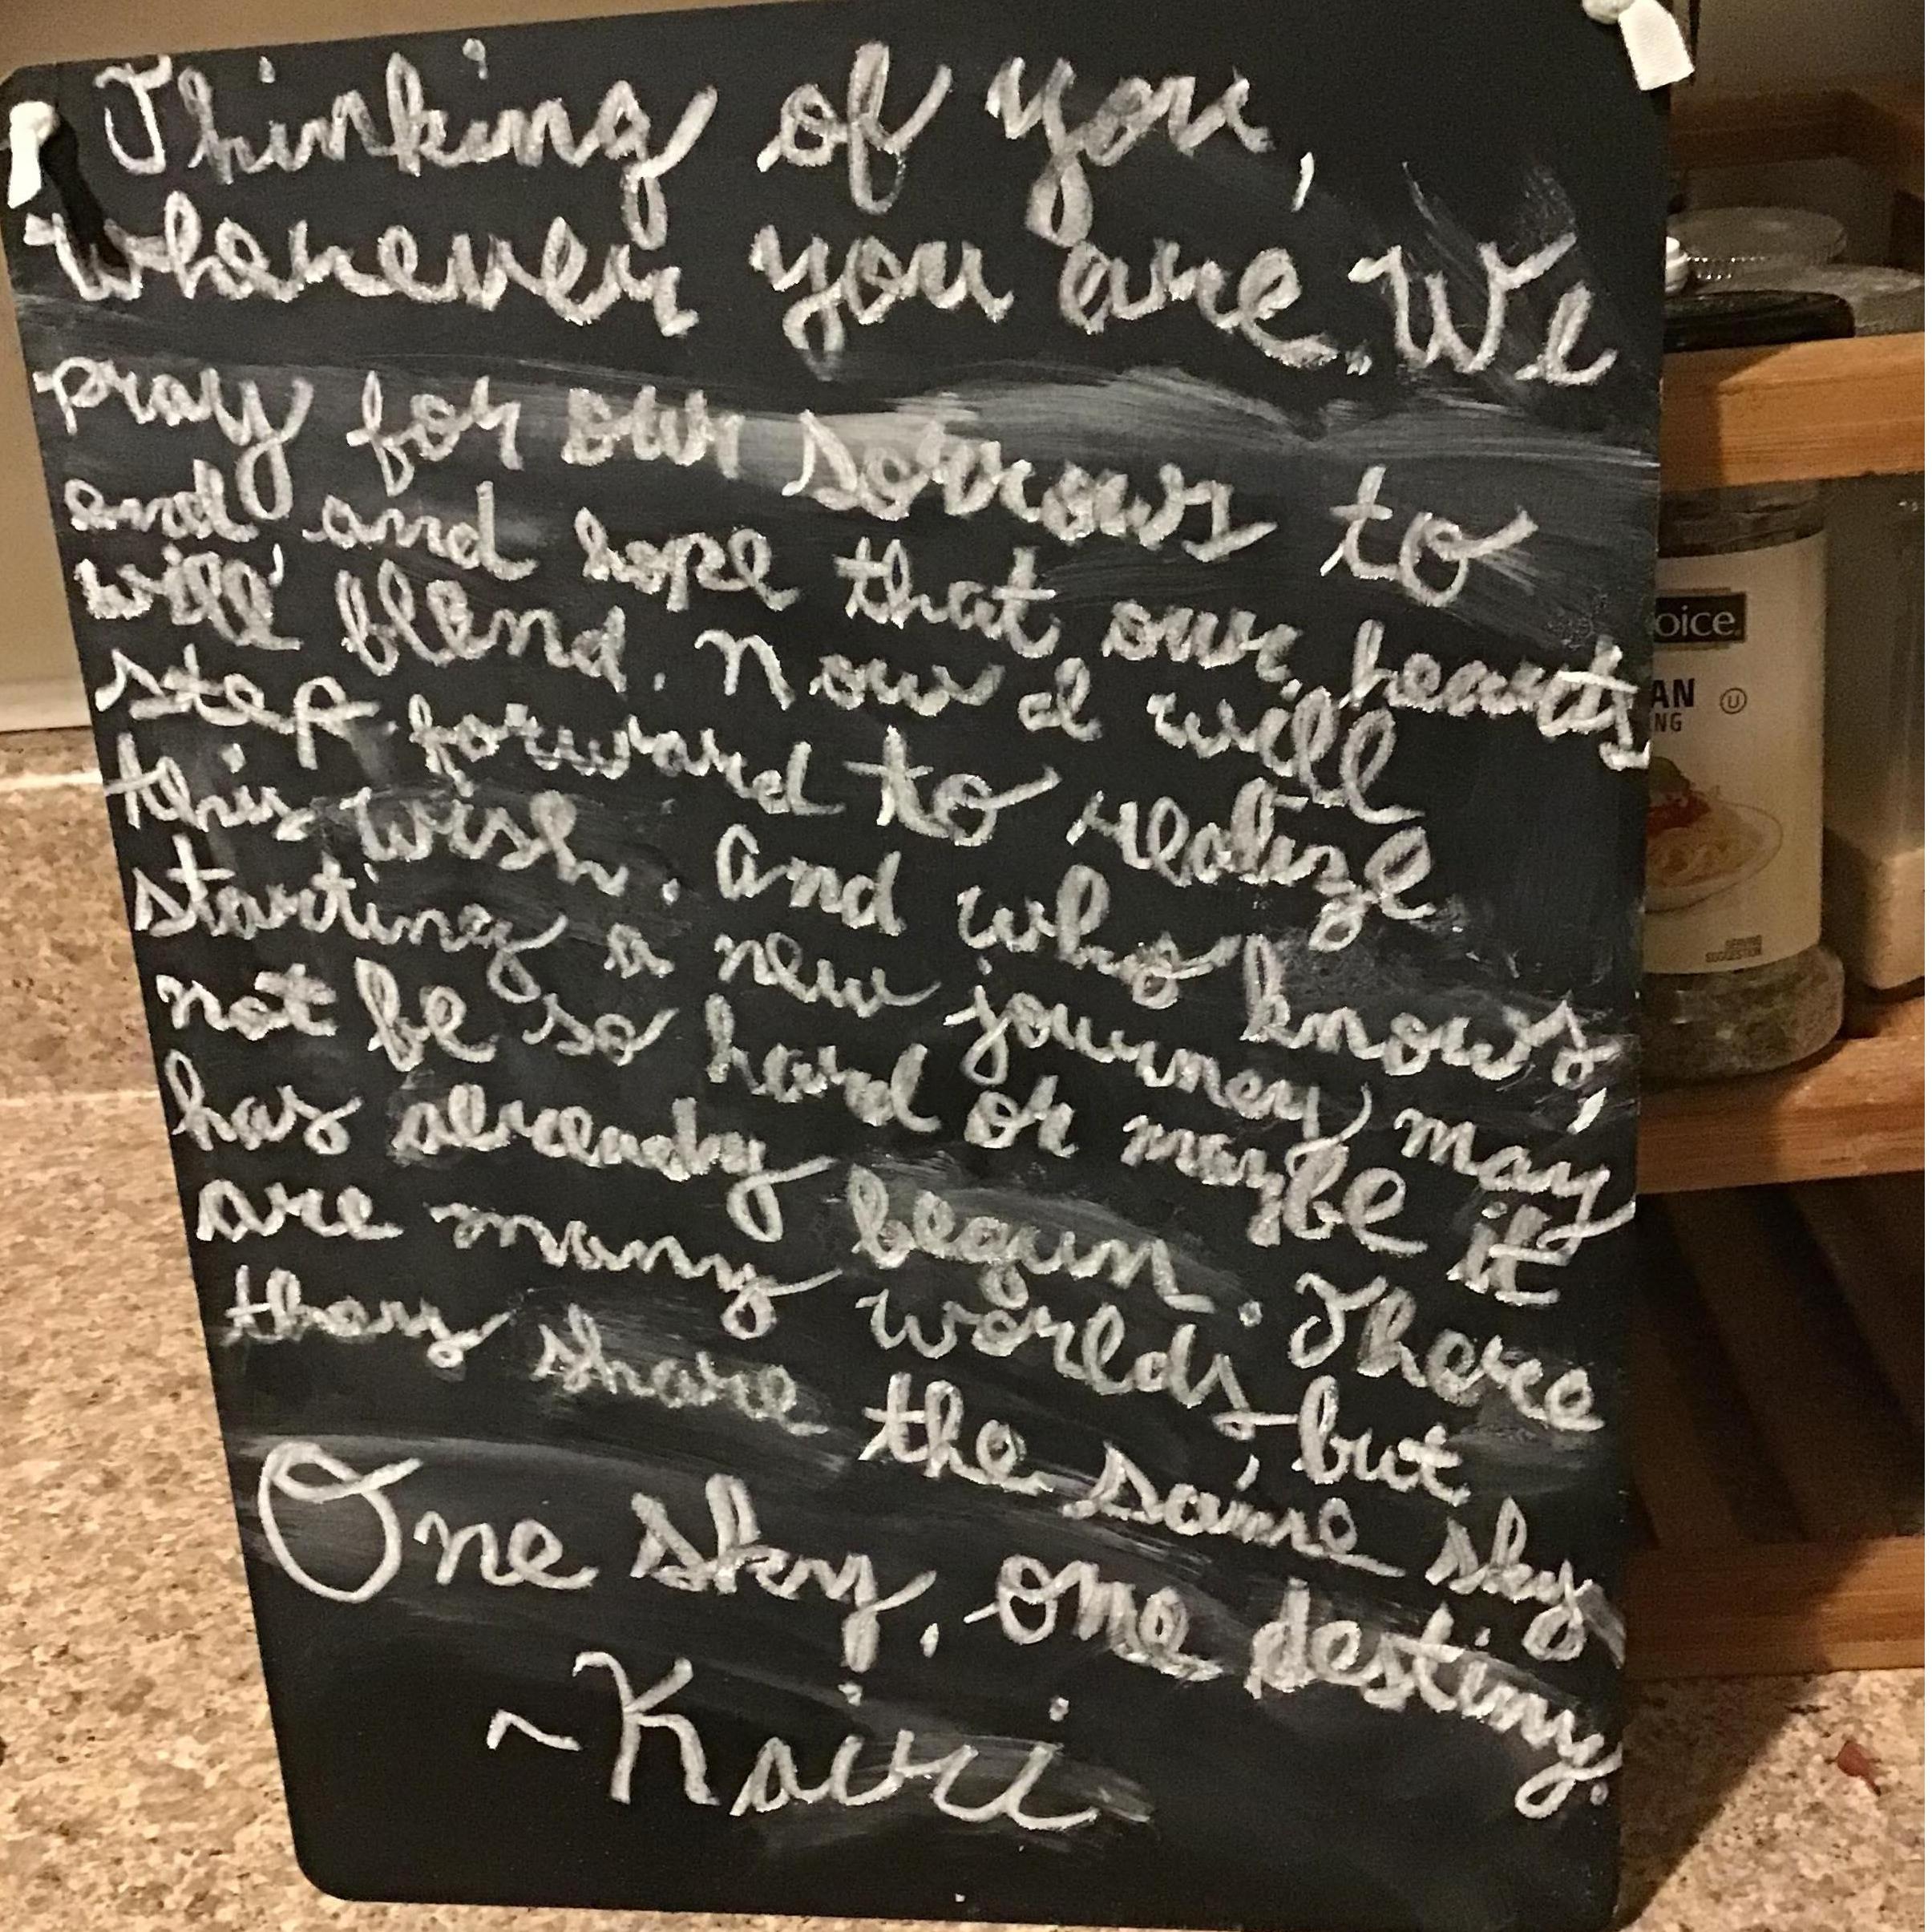 Thinking of you,
wherever you are. We
pray for our sorrows to
end and hope that our hearts
will blend. Now I will
step forward to realize
this wish. And who knows,
starting a new journey may
not be so hard or maybe it
has already begun. There
are many worlds, but
they share the same sky
One sky, one destiny.
~Kairi
oice.
AN
NG
U
SERVING
SUGGESTION